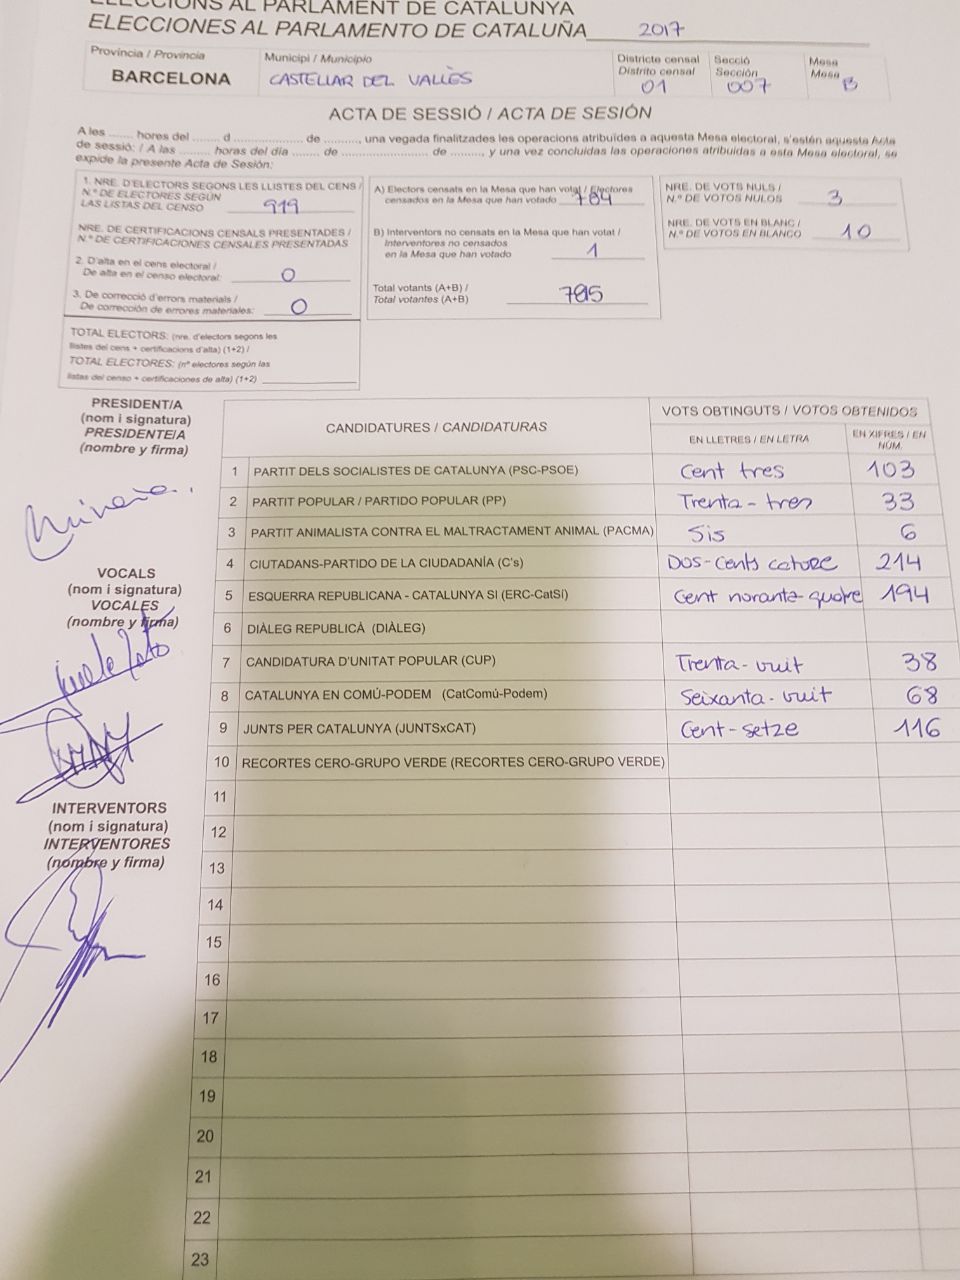 ELECCIONS AL PARLAMENT DE CATALUNYA
ELECCIONES AL PARLAMENTO DE CATALUÑA 2017
Província / Provincia
BARCELONA
Municipi / Municipio
CASTELLAR DEL VALLÈS
Districte censal
Distrito censal
01
Secció
Sección
007
Mesa
Mesa
B
ACTA DE SESSIÓ / ACTA DE SESIÓN
A les ........ hores del ........ d .................. de .........., una vegada finalitzades les operacions atribuïdes a aquesta Mesa electoral, s'estén aquesta Acta
de sessió: / A las ......... horas del día ....... de .................... de ........., y una vez concluidas las operaciones atribuidas a esta Mesa electoral, se
expide la presente Acta de Sesión:
1. NRE. D'ELECTORS SEGONS LES LLISTES DEL CENS /
N.º DE ELECTORES SEGÚN
LAS LISTAS DEL CENSO 919
NRE. DE CERTIFICACIONS CENSALS PRESENTADES /
N.º DE CERTIFICACIONES CENSALES PRESENTADAS
2. D'alta en el cens electoral /
De alta en el censo electoral: 0
3. De correcció d'errors materials /
De corrección de errores materiales: 0
TOTAL ELECTORS: (nre. d'electors segons les
llistes del cens + certificacions d'alta) (1+2) /
TOTAL ELECTORES: (nº electores según las
listas del censo + certificaciones de alta) (1+2)
A) Electors censats en la Mesa que han votat / Electores
censados en la Mesa que han votado 784
B) Interventors no censats en la Mesa que han votat /
Interventores no censados
en la Mesa que han votado 1
Total votants (A+B) /
Total votantes (A+B) 785
NRE. DE VOTS NULS /
N.º DE VOTOS NULOS 3
NRE. DE VOTS EN BLANC /
N.º DE VOTOS EN BLANCO 10
PRESIDENT/A
(nom i signatura)
PRESIDENTE/A
(nombre y firma)
VOCALS
(nom i signatura)
VOCALES
(nombre y firma)
INTERVENTORS
(nom i signatura)
INTERVENTORES
(nombre y firma)
CANDIDATURES / CANDIDATURAS
VOTS OBTINGUTS / VOTOS OBTENIDOS
EN LLETRES / EN LETRA
EN XIFRES / EN
NÚM.
1 PARTIT DELS SOCIALISTES DE CATALUNYA (PSC-PSOE) Cent tres 103
2 PARTIT POPULAR / PARTIDO POPULAR (PP) Trenta-tres 33
3 PARTIT ANIMALISTA CONTRA EL MALTRACTAMENT ANIMAL (PACMA) Sis 6
4 CIUTADANS-PARTIDO DE LA CIUDADANÍA (C's) Dos-cents catorze 214
5 ESQUERRA REPUBLICANA - CATALUNYA SI (ERC-CatSí) Cent noranta-quatre 194
6 DIÀLEG REPUBLICÀ (DIÀLEG)
7 CANDIDATURA D'UNITAT POPULAR (CUP) Trenta-vuit 38
8 CATALUNYA EN COMÚ-PODEM (CatComú-Podem) Seixanta-vuit 68
9 JUNTS PER CATALUNYA (JUNTSxCAT) Cent-setze 116
10 RECORTES CERO-GRUPO VERDE (RECORTES CERO-GRUPO VERDE)
11
12
13
14
15
16
17
18
19
20
21
22
23